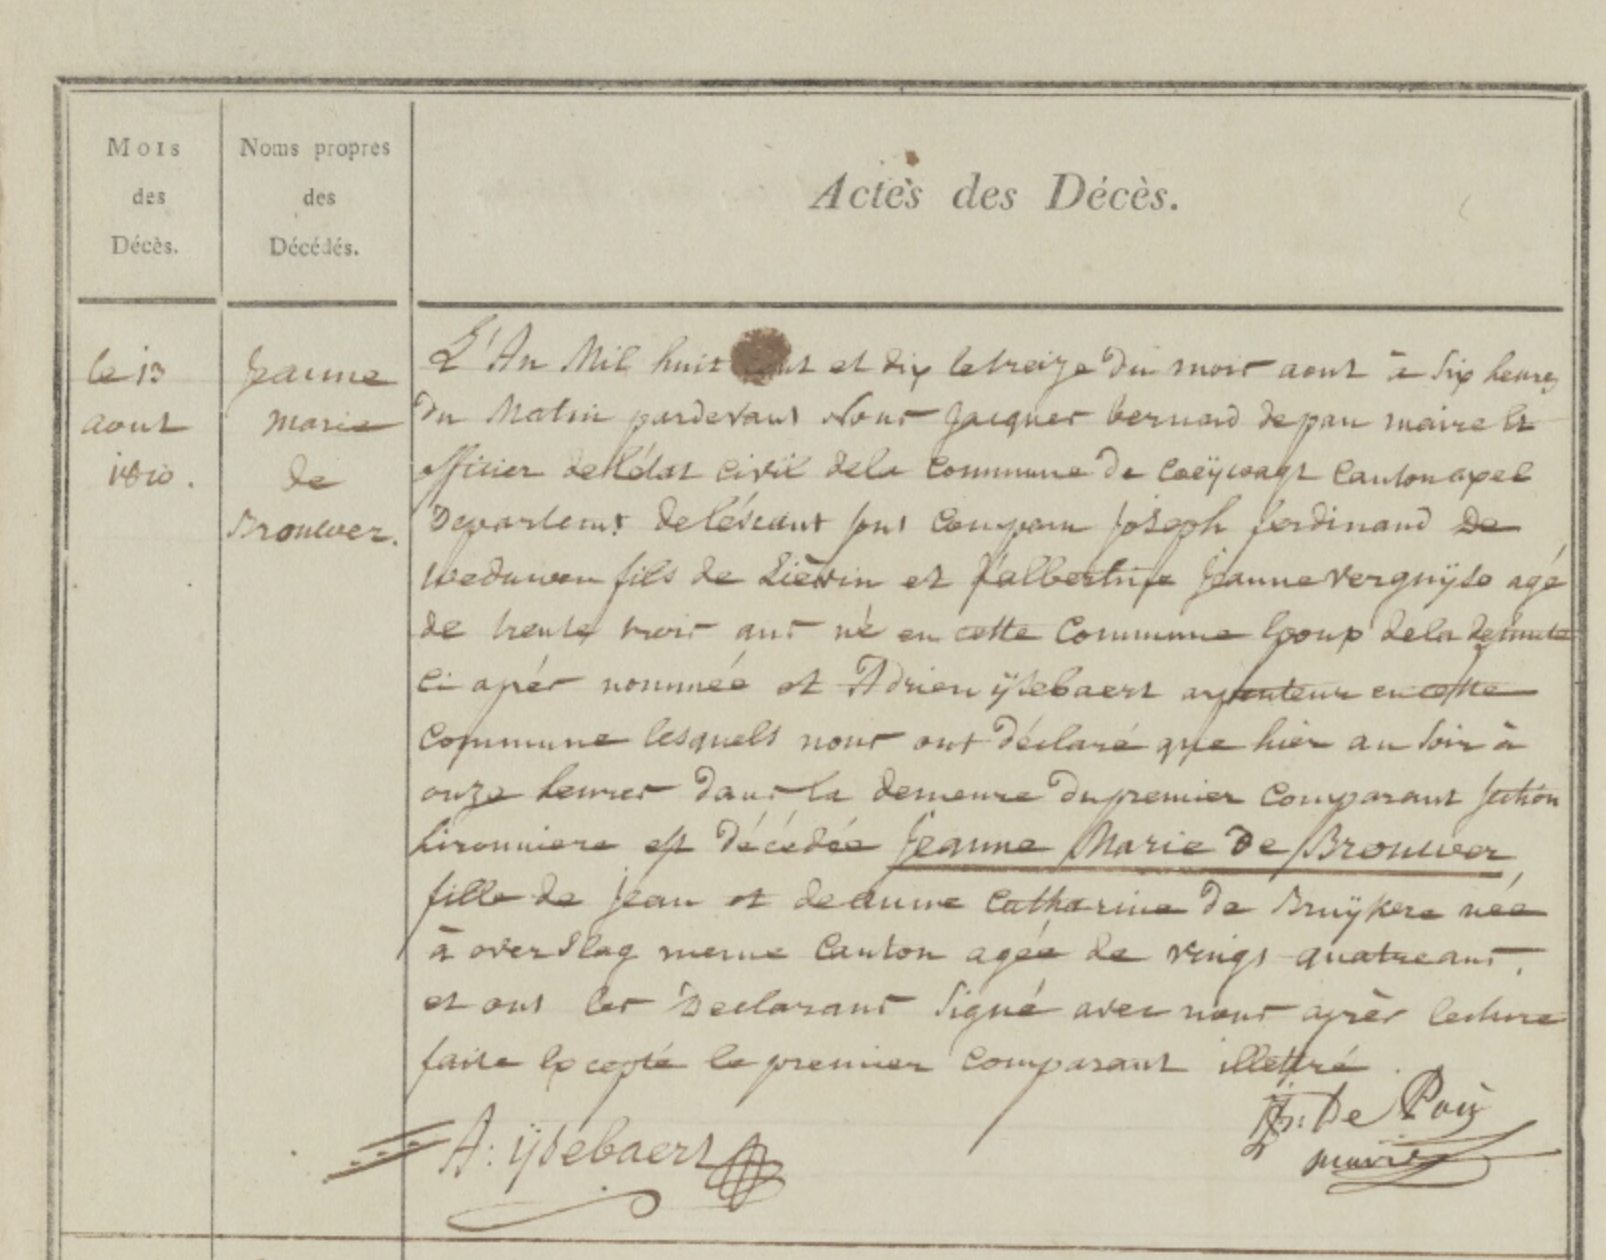 Mois
des
Décès.
Noms propres
des
Décédés.
Actes des Décès.
le 13
aout
1810.
Jeanne
Marie
de
Brouwer.
L'An Mil huit cent et dix le treize du mois aout à six heures
du Matin pardevant Nous Jacques bernard de pau maire et
officier de l'état civil dela Commune de Coeÿwagt Canton axel
Departemt de léscaut sont Comparu Joseph ferdinand De
weduwen fils de Lièvin et d'albertine Jeanne verguÿse agé
de trente trois ans né en cette Commune Epoux dela défunte
ci aprés nommée et Adrien ÿsebaert arpenteur en cette
Commune lesquels nous ont déclaré que hier au soir à
onze heures dans la demeure du premier Comparant section
est décédée Jeanne Marie De Brouwer
fille de Jean et de anne Catharine de Bruÿkere née
à overslag meme Canton agée de vingt quatre ans,
et ont les Declarant Signé avec nous après lecture
faite Excepté le premier Comparant illettré.
A: ÿsebaert
JB: De Paú
maire